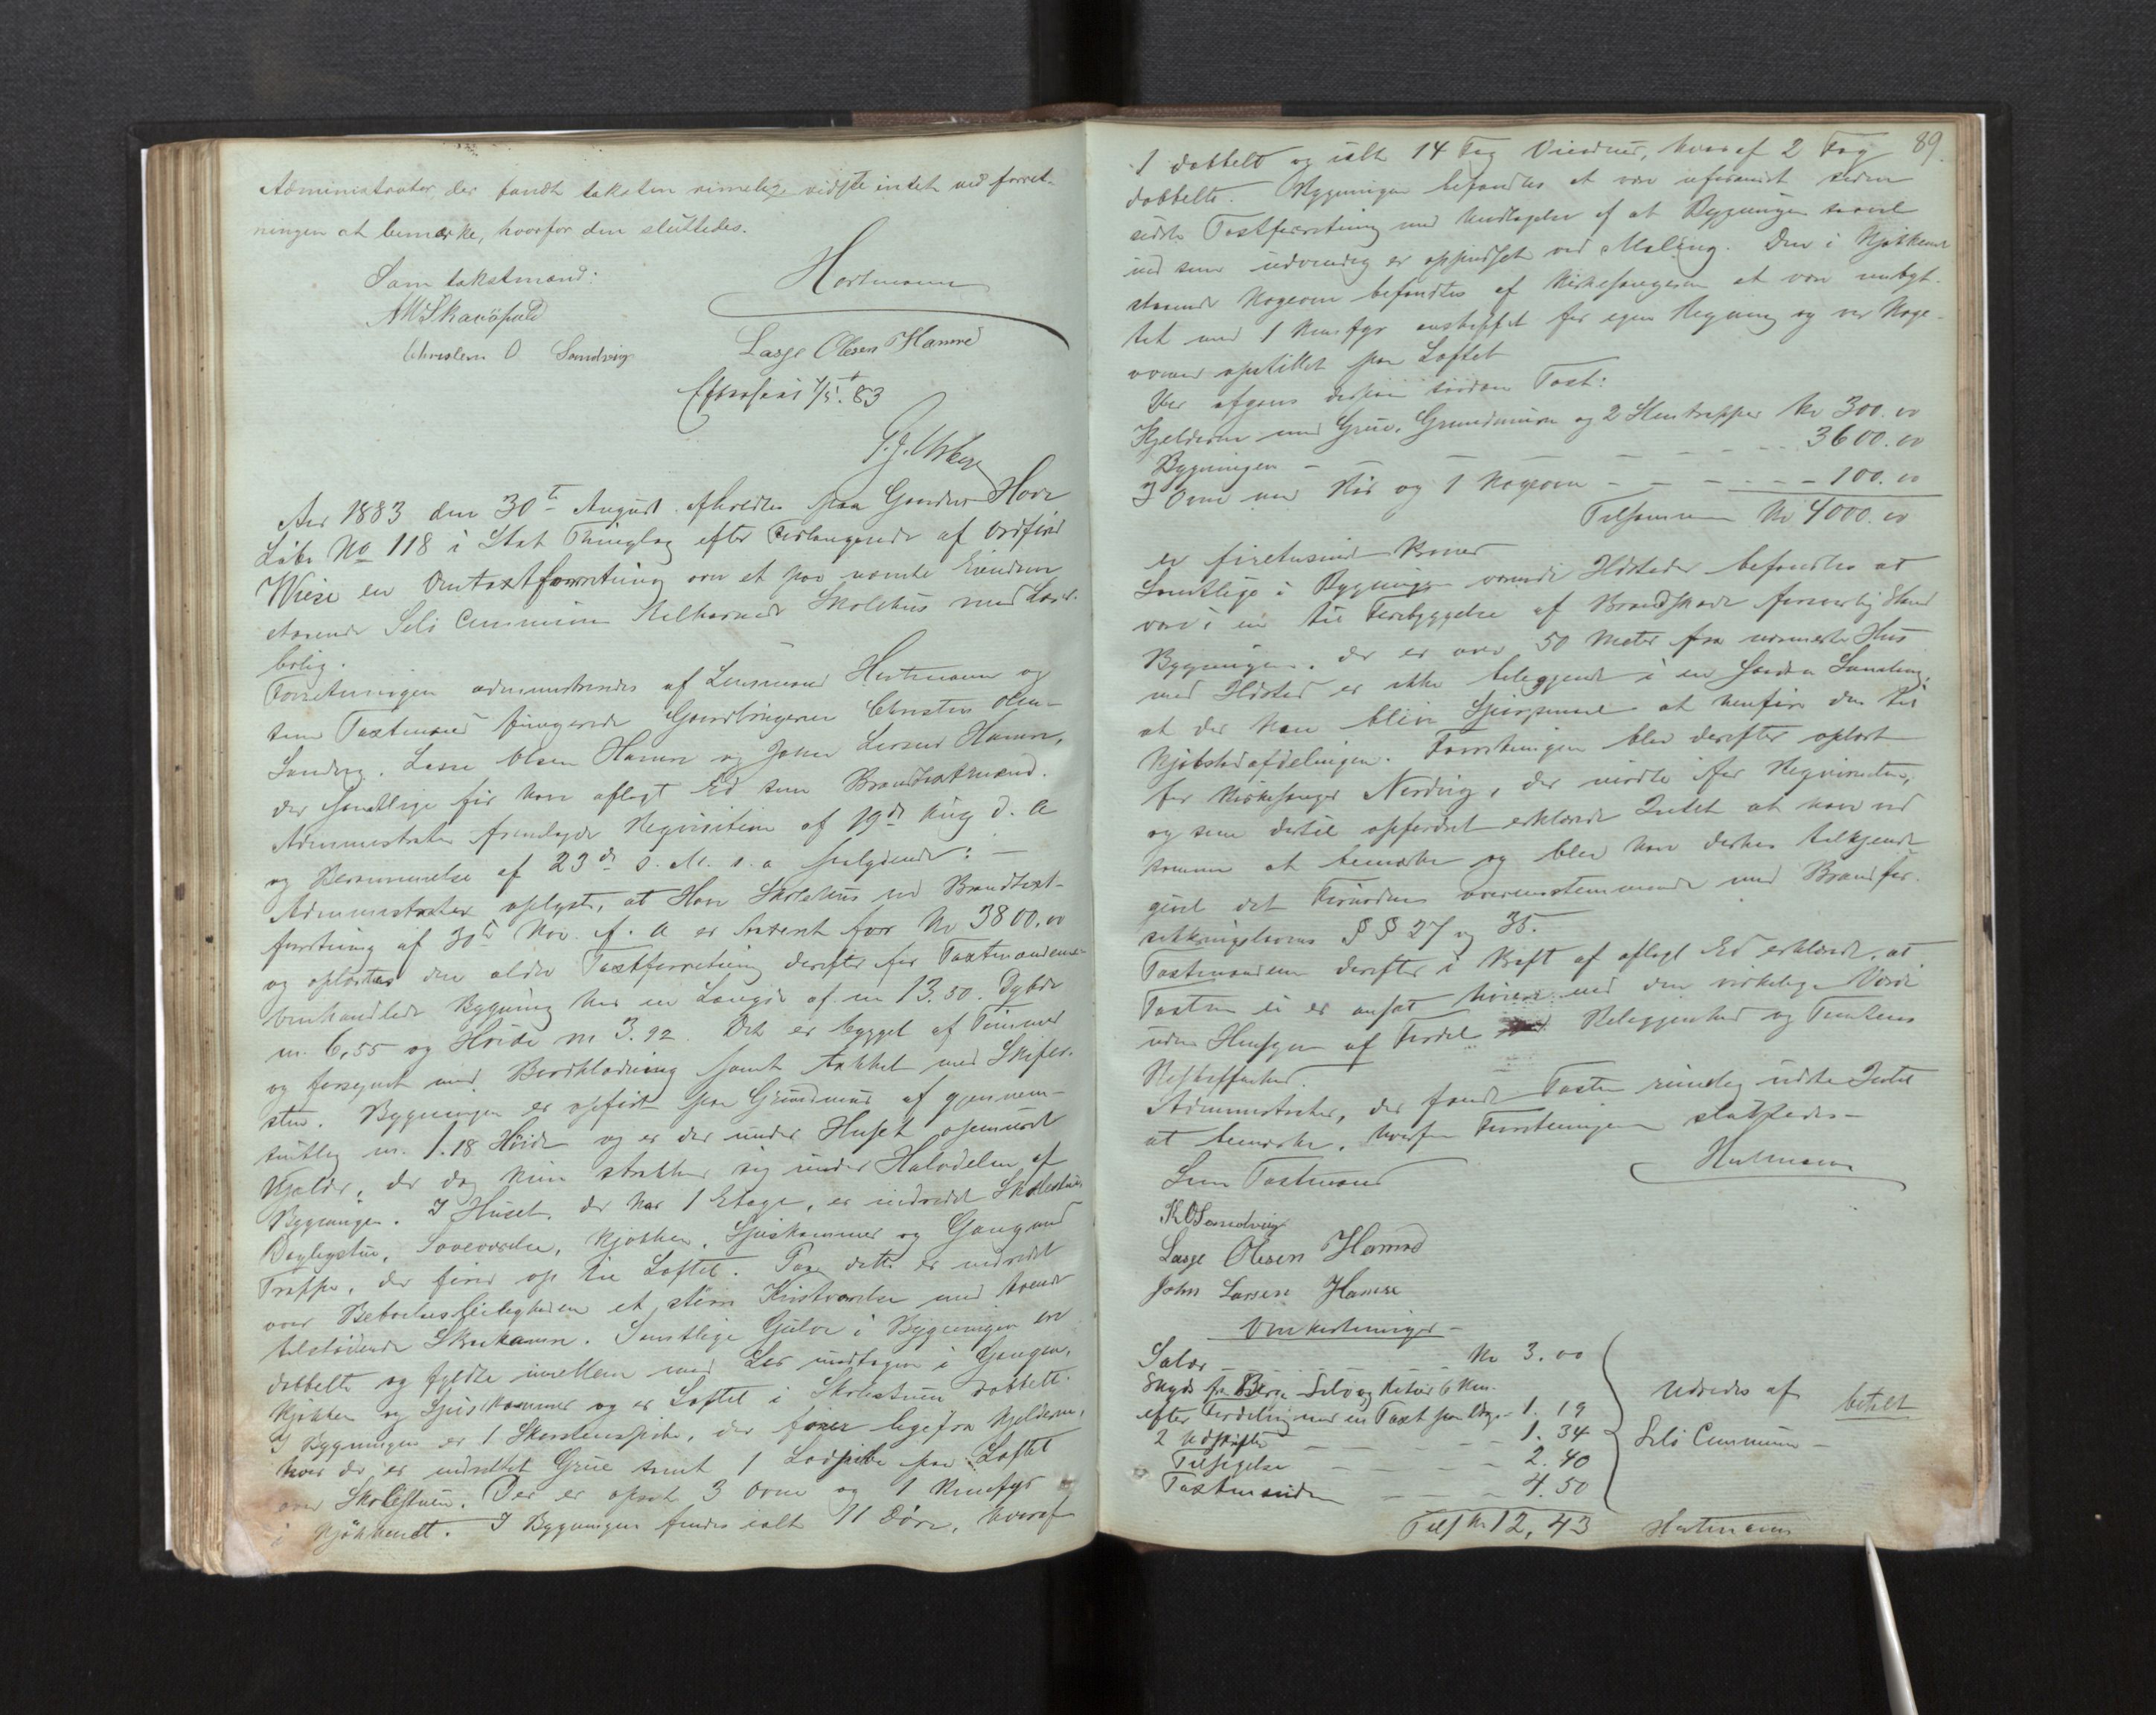 Administrator der fandt taksten rimelig vidste intet ved forret-
ningen at bemærke, hvorfor den sluttedes.
Som takstmænd:
Hartmann
Christen O. Sandvig
Lasse Olesen Hamre
83
Aar 1883 den 30te August afholdtes paa Gaarden Hove
Løbe No 118 i Thinglag efter Forlangende af Ordfører
Wiese en Omtaxtforretning over et paa nævnte Eiendom
staaende Selø Communes tilhørende Skolehus med Lærer-
bolig.
Forretningen administreredes af Lensmand Hartmann og
som Taxtmænd fungerede Gaardbrugerne Christen Olsen
Sandvig, Lasse Olsen Hamre og Johan Larsen Hamre,
der samtlige før have aflagt Ed som Brandtaxtmænd.
Administrator fremlagde Reqvisition af 19de Aug d. A
og Berammelse af 23de s. M. s. a saalydende: —
Administrator oplyste, at Hove Skolehus ved Brandtaxt-
forretning af 30te Nov. f. A er taxeret for Kr 3800.00
og oplæstes den ældre Taxtforretning derefter for Taxtmændene
Omhandlede Bygning har en Længde af m 13.50. Dybde
m. 6,55 og Høide m 3.92. Det er bygget af Tømmer
og forsynet med Bordklædning samt tækket med Skifer-
sten. Bygningen er opført paa Grundmur af gjennem-
snitlig m. 1.18 Høide og er der under Huset opmuret
Kjelder, der dog kun strækker sig under Halvdelen af
Bygningen. I Huset, der har 1 Etage, er indredet Skolestue,
Dagligstue, Soveværelse, Kjøkken, Spiskammer og Gang med
Trappe, der fører op til Loftet. Paa dette er indredet
over Beboelsesleiligheden et større Kvistværelse med tvende
tilstødende Skraakamre. Samtlige Gulve i Bygningen ere
dobbelte og fyldte imellem med Ler undtagen i Gangen,
Kjøkken og Spiskammer og er Loftet i Skolestuen dobbelt.
I Bygningen er 1 Skorstenspibe, der fører lige fra Kjelderen,
hvor der er indrettet Grue samt 1 Lodpibe paa Loftet
over Skolestuen. Der er opsat 3 Ovne og 1 Komfyr
i Kjøkkenet. I Bygningen findes ialt 11 Døre, hvoraf
89.
1 dobbelt og ialt 14 Fag Vinduer, hvoraf 2 Fag
dobbelte. Bygningen befandtes at være uforandret siden
sidste Taxtforretning med Undtagelse af at Bygningen saavel
ind som udvendig er oppudset ved Maling. Den i Kjøkkenet
staaende Kogeovn befandtes af Kirkesangeren at være ombyt-
tet med 1 Komfyr anskaffet for egen Regning og var Koge-
ovnen opstillet paa Loftet
Der afgaves derpaa saadan Taxt:
Kjelderen med Grue, Grundmuren og 2 Stentrapper Kr 300.00
Bygningen — — — — — — 3600.00
3 Ovne med Rør og 1 Kogeovn — — — — 100.00
Tilsammen Kr 4000.00
er firetusind Kroner
Samtlige i Bygningen værende Ildsteder befandtes at
være i en til Forebyggelse af Brandskade forsvarlig Stand
Bygningen, der er over 50 Meter fra nærmeste Hus
med Ildsted er ikke beliggende i en saadan Samling,
at der kan blive Spørgsmaal at henføre den til
Kjøbstadafdelingen. Forretningen blev derefter oplæst
for Kirkesanger Nerdvig, der mødte for Reqvirenten,
og som dertil opfordret erklærede Intet at have ved
samme at bemærke og blev ham derhos tilkjende-
givet det Fornødne overensstemmende med Brandfor-
sikringslovens §§ 27 og 35.
Taxtmændene derefter i Kraft af aflagt Ed erklærede, at
Taxten ei er ansat høiere end den virkelige Værdi
uden Hensyn af Fordel Beliggenhed og Tomtens
Beskaffenhed.
Administrator, der fandt Taxten rimelig vidste Intet
at bemærke, hvorfor Forretningen sluttedes—
Hartmann
Som Taxtmænd
K O Sandvig
Lasse Olesen Hamre
John Larsen Hamre
Omkostninger —
Salær — — — — — Kr 3.00
Skyds fra Berge Selø og Retur 6 Km.
efter Fordeling med en Taxt paa 1. 19
2 Udskrifter — — — 1. 34
Tilsigelse — — — 2. 40
Taxtmænden — — 4. 50
Tils Kr 12,43
Udredes af
Selø Commune —
betalt
Hartmann